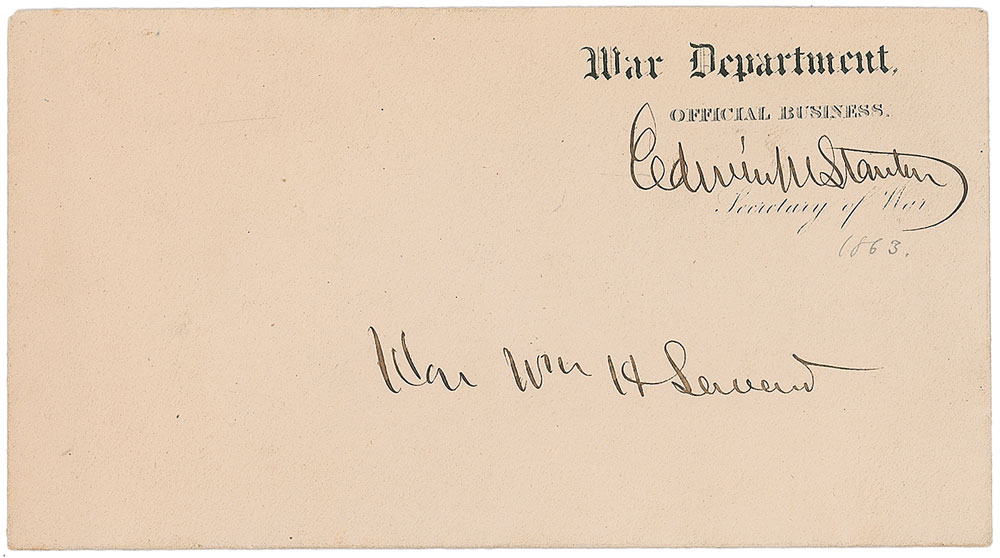 War Department.
OFFICIAL BUSINESS.
Edwin M Stanton
Secretary of War
1863.
Hon Wm H Seward